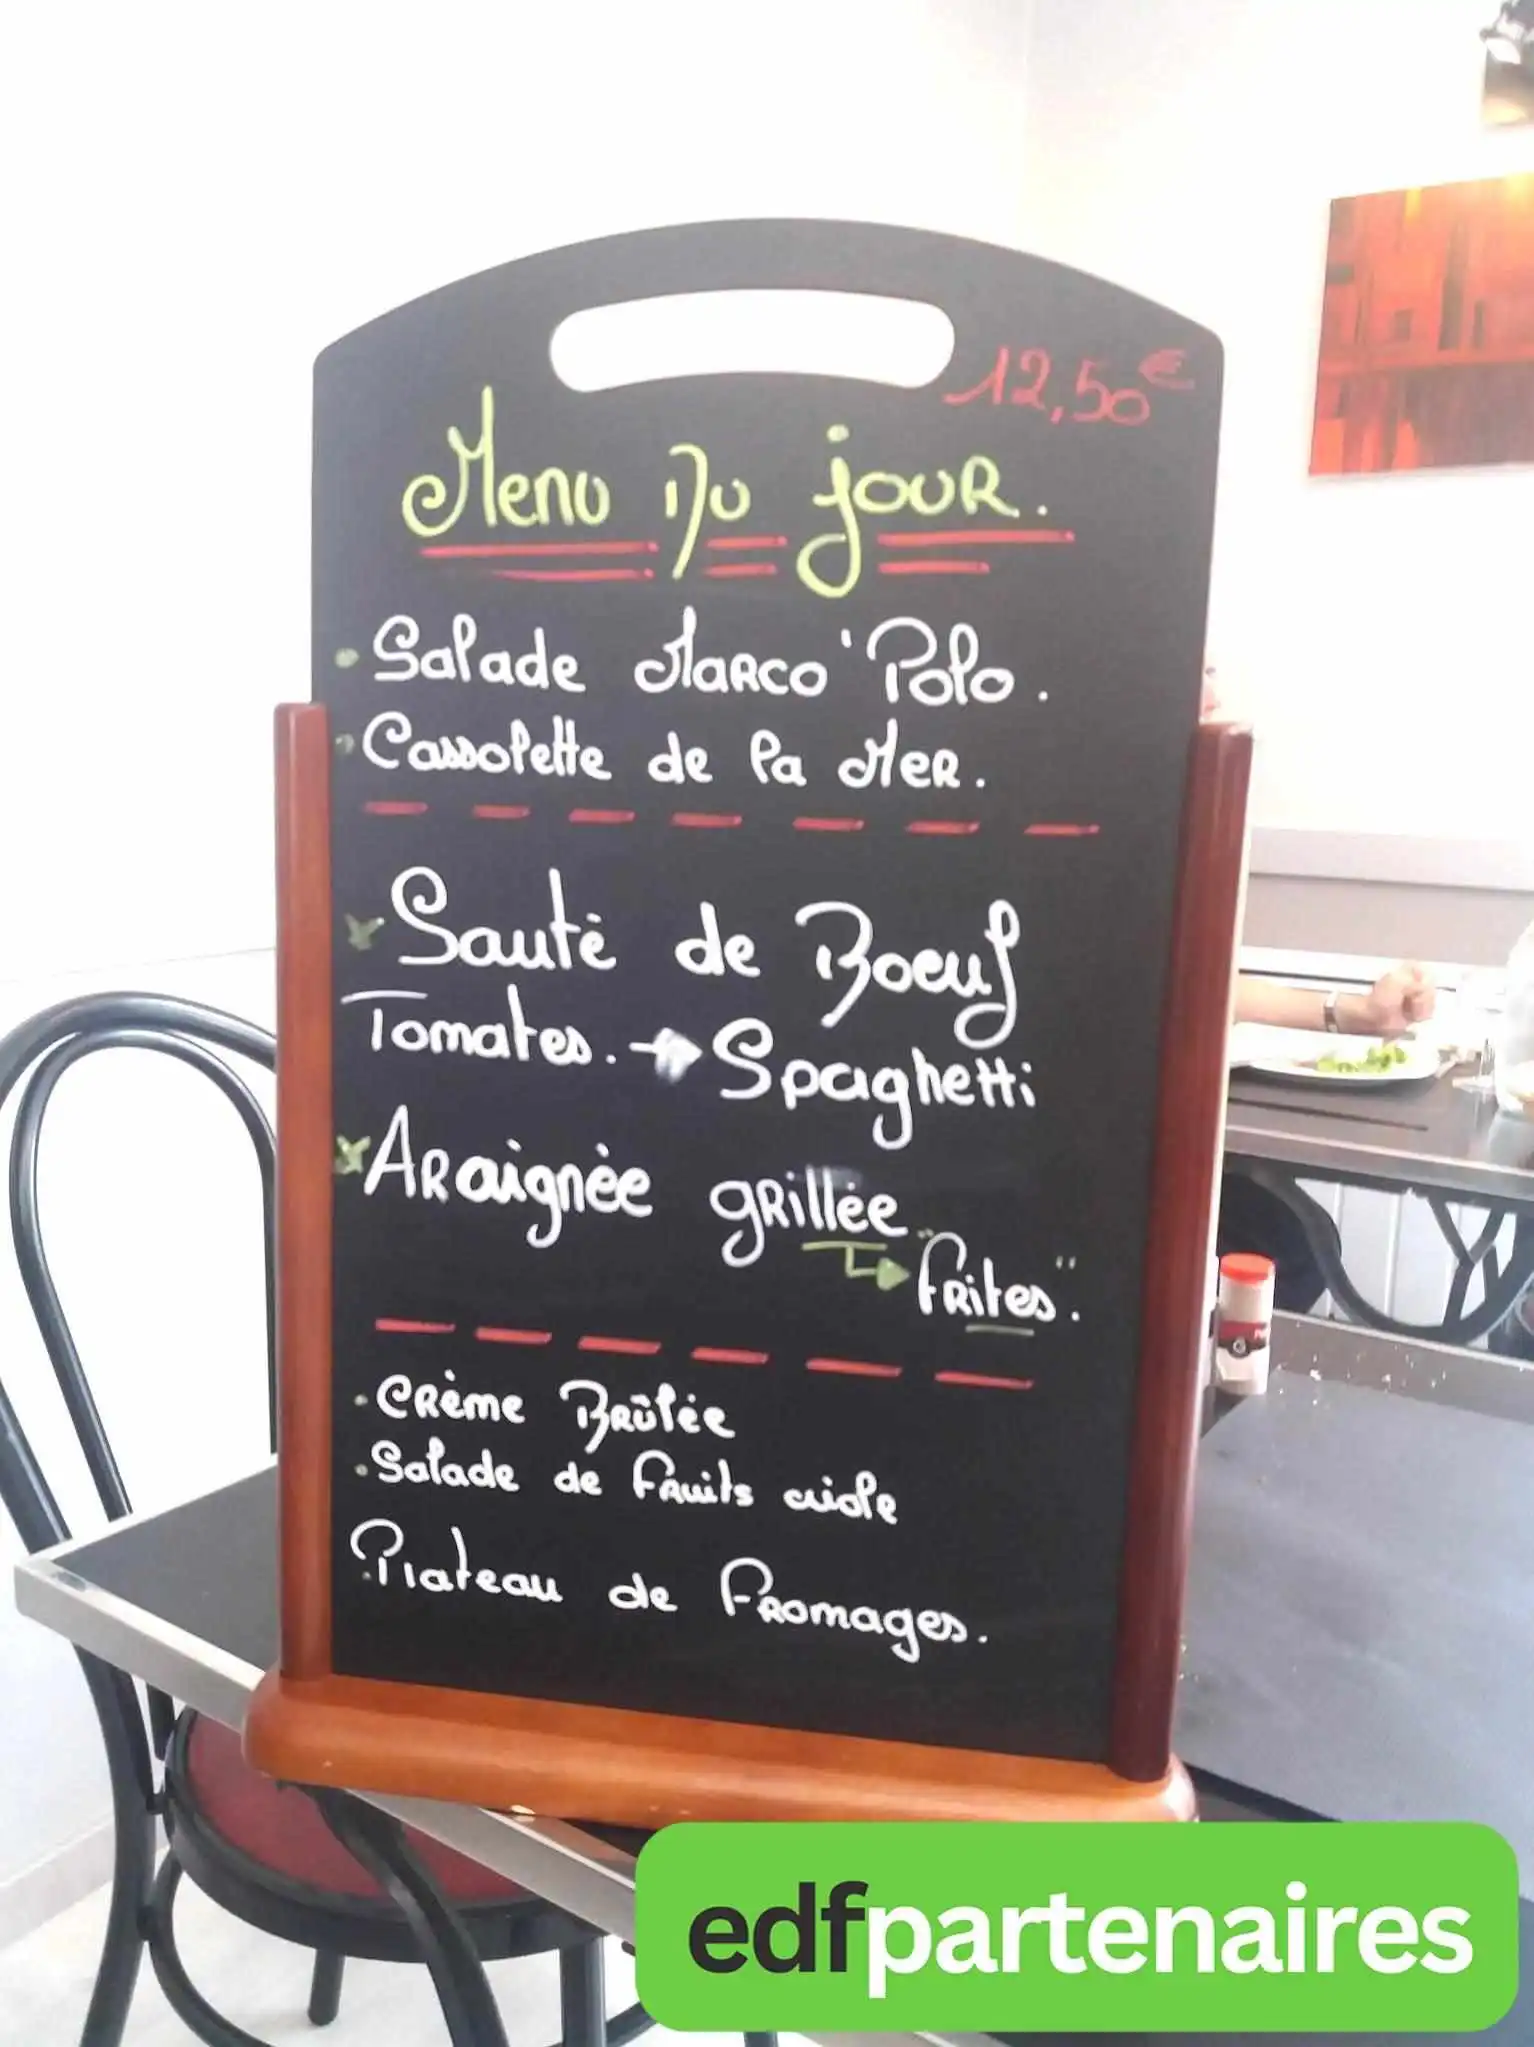 12,50€
Menu Du jour.
Salade Marco 'Polo.
Cassolette de la Mer.
Sauté de Boeuf
Tomates. → Spaghetti
Araignée grillée
"frites".
Crème Brûlée
Salade de fruits
Plateau de fromages.
edfpartenaires